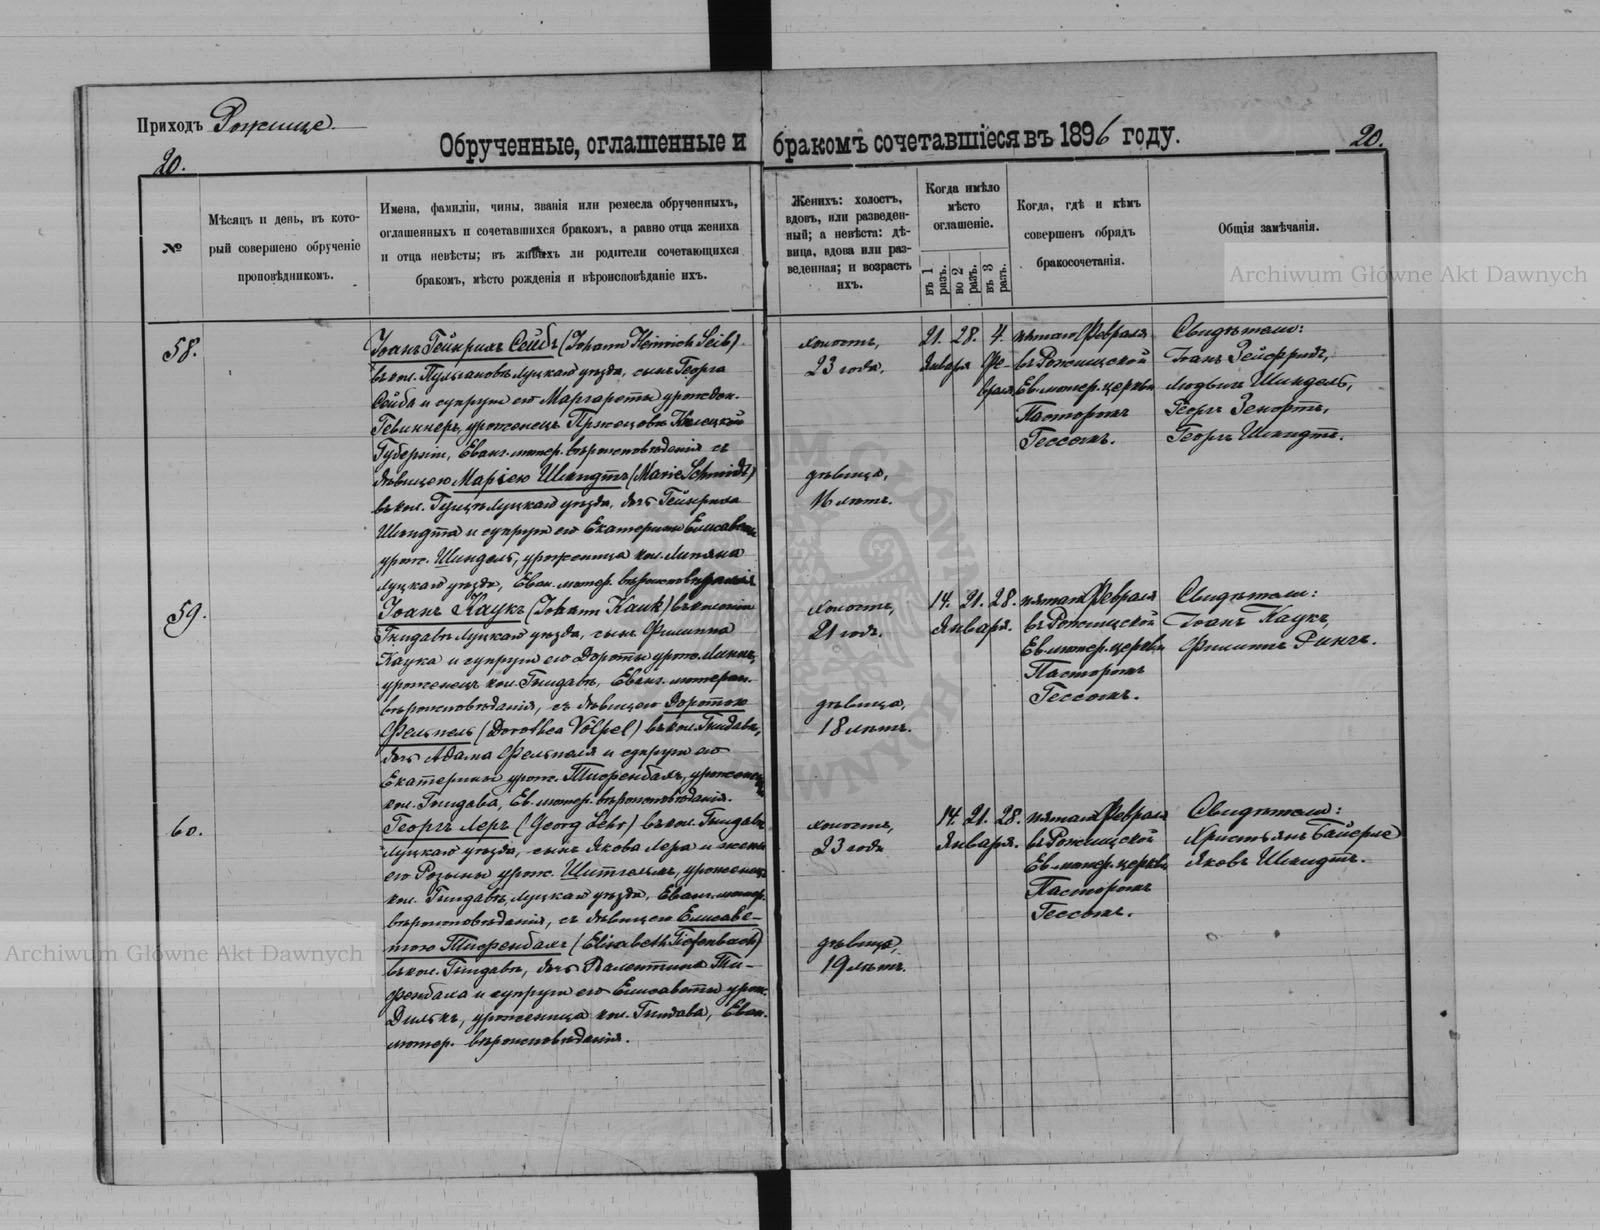 Приходъ Рожище.
Обрученные, оглашенные и бракомъ сочетавшіеся въ 1896 году.
20.
20.
№
Мѣсяцъ и день, въ кото-
рый совершено обрученіе
проповѣдникомъ.
Имена, фамиліи, чины, званія или ремесла обрученныхъ,
оглашенныхъ и сочетавшихся бракомъ, а равно отца жениха
и отца невѣсты; въ живыхъ ли родители сочетающихся
бракомъ, мѣсто рожденія и вѣроисповѣданіе ихъ.
Женихъ: холостъ,
вдовъ, или разведен-
ный; а невѣста: дѣ-
вица, вдова или раз-
веденная; и возрастъ
ихъ.
Когда имѣло
мѣсто
оглашеніе.
въ 1 разъ.
во 2 разъ.
въ 3 разъ.
Когда, гдѣ и кѣмъ
совершенъ обрядъ
бракосочетанія.
Общія замѣчанія.
58.
Іоанъ Гейнрихъ Сейбъ (Johann Heinrich Seib)
въ кол. Пульгановъ Луцкаго уѣзда, сынъ Георга
Сейба и супруги его Маргареты урожден.
уроженецъ Пржецовъ Кѣлецкой
Губерніи, Еванг. лютер. вѣроисповѣданія съ
дѣвицею Маріею Шмидтъ (Marie Schmidt)
въ кол. Луцкаго уѣзда, дочь Гейнриха
Шмидта и супруги его Екатерины Елисаветы
урож. Шиндель, уроженица кол. Липяна
Луцкаго уѣзда, Еван. лютер. вѣроисповѣданія
холостъ,
23 года,
дѣвица,
16 лѣтъ.
21. 28. 4.
Января Фе-
враля
пятаго Февраля
въ Рожищской
Ев. лютер. церкви
Пасторомъ
Гессомъ.
Свидѣтели:
Іоанъ Зейфридъ,
Людвигъ Шиндель,
Георгъ Зепортъ,
Георгъ Шмидтъ.
59.
Іоанъ Каукъ (Johann Kauk) въ колоніи
Гнидавъ Луцкаго уѣзда, сынъ Филиппа
Каука и супруги его Дороты урож. Минхъ,
уроженецъ кол. Гнидавъ, Еванг. лютеран.
вѣроисповѣданія, съ дѣвицею Доротою
Фельпель (Dorothea Völpel) въ кол. Гнидавъ,
дочь Адама Фельпеля и супруги его
Екатерины урож. Тиефенбахъ, уроженица
кол. Гнидава, Ев. лютер. вѣроисповѣданія.
холостъ,
21 годъ.
дѣвица,
18 лѣтъ.
14. 21. 28.
Января.
пятаго Февраля
въ Рожищской
Ев. лютер. церкви
Пасторомъ
Гессомъ.
Свидѣтели:
Іоанъ Каукъ,
Филиппъ Рингъ.
60.
Георгъ Леръ (Georg Lehr) въ кол. Гнидавъ
Луцкаго уѣзда, сынъ Якова Лера и жены
его Розины урож. уроженецъ
кол. Гнидавъ, Луцкаго уѣзда, Еванг. лютер.
вѣроисповѣданія, съ дѣвицею Елисаве-
тою Тиефенбахъ (Elisabeth Tiefenbach)
въ кол. Гнидавъ, дочь Валентина Ти-
фенбаха и супруги его Елисаветы урож.
Дилькъ, уроженица кол. Гнидава, Еван.
лютер. вѣроисповѣданія.
холостъ,
23 года
дѣвица,
19 лѣтъ.
14. 21. 28.
Января.
пятаго Февраля
въ Рожищской
Ев. лютер. церкви
Пасторомъ
Гессомъ.
Свидѣтели:
Христьянъ Байерле
Яковъ Шмидтъ.
Archiwum Główne Akt Dawnych
Archiwum Główne Akt Dawnych